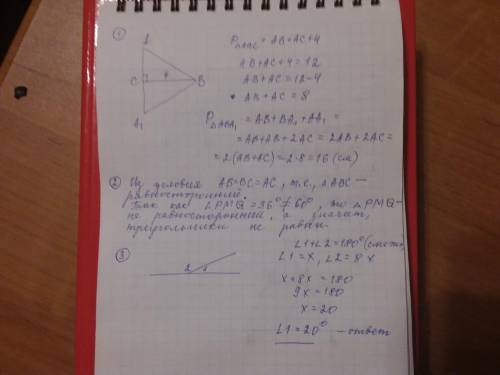 ①
A
C
4
B
A₁
P△ABC = AB+AC+4
AB+AC+4=12
AB+AC=12-4
AB+AC=8
P△ABA₁ = AB+BA₁+AA₁ =
=AB+AB+2AC=2AB+2AC=
=2(AB+AC)=2·8=16 (см)
② Из условия AB=BC=AC, т.е., △ABC –
равносторонний.
Так как ∠PMQ=36°≠60°, то △PMQ–
не равносторонний, а значит,
треугольники не равны.
③
2 1
∠1+∠2=180° (смежн)
∠1=x, ∠2=8x
x=8x=180
9x=180
x=20
∠1=20° – ответ